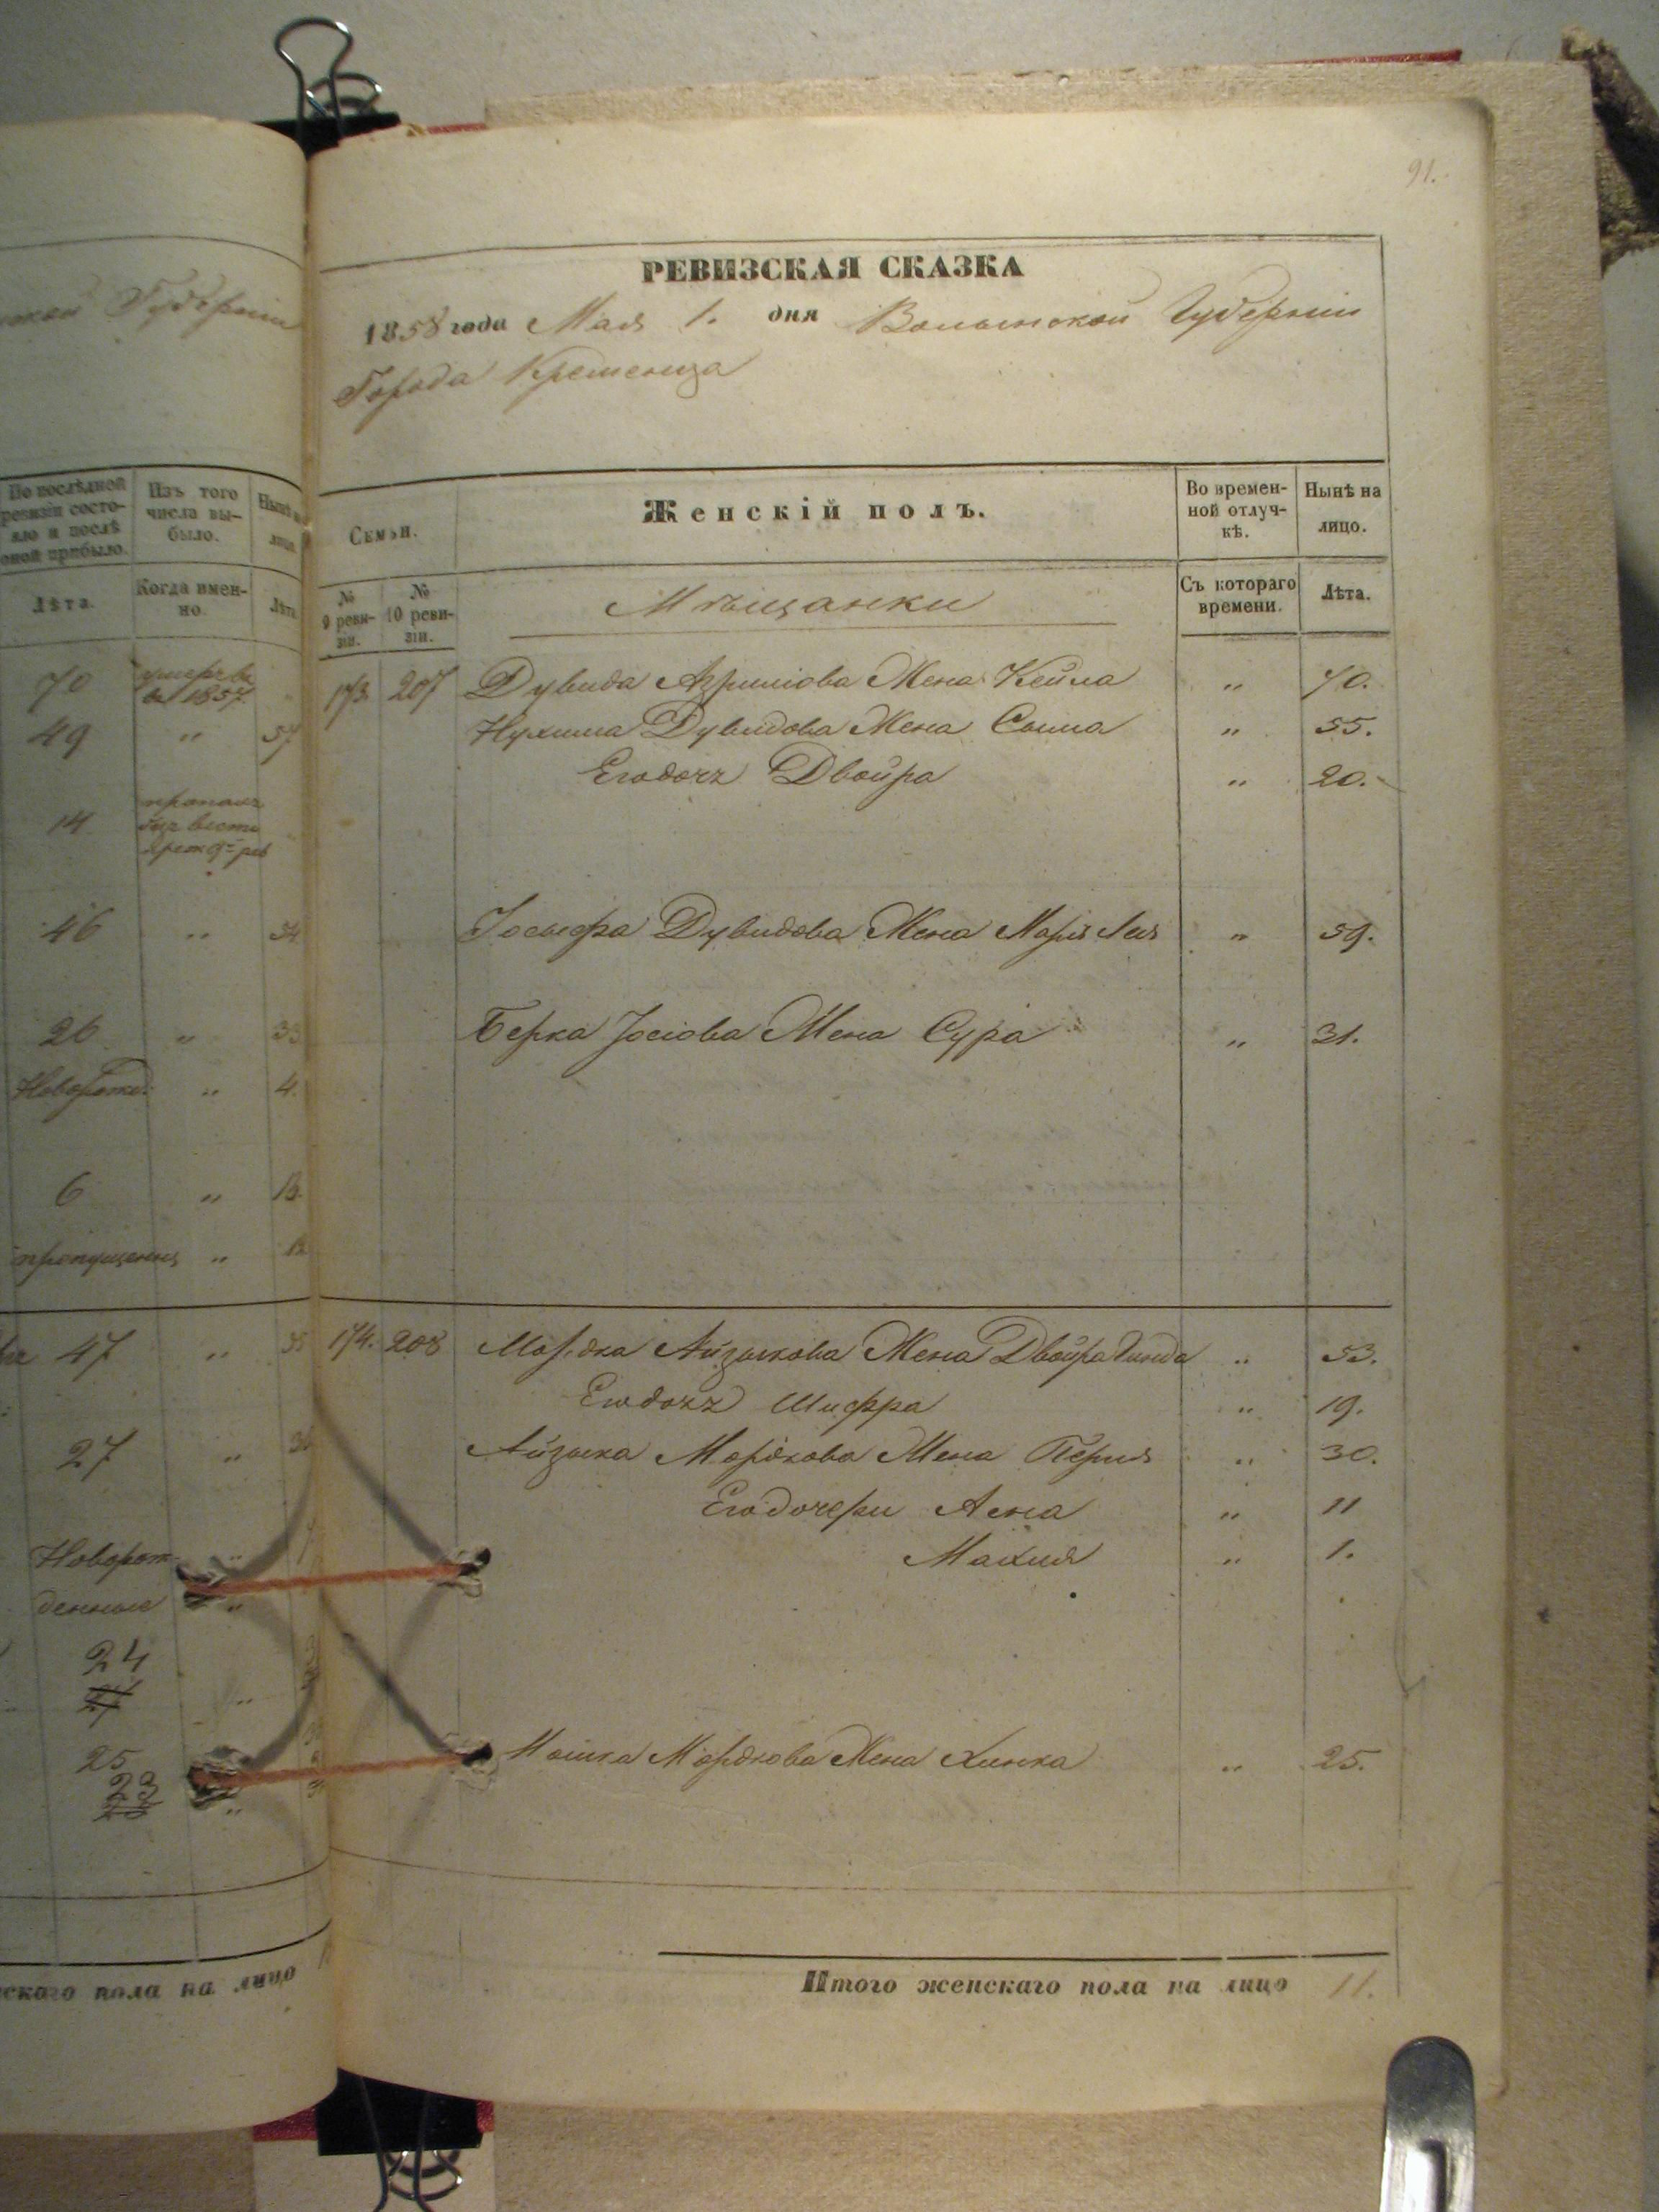 91.
РЕВИЗСКАЯ СКАЗКА
1858 года Мая 1. дня Волынской Губерніи
Города Кременца
Семьи. Женскій полъ. Во времен-ной отлуч-кѣ. Нынѣ на лицо.
№ 9 реви-зіи. № 10 реви-зіи. Мѣщанки Съ котораго времени. Лѣта.
173 207 Дувида Азриліова Жена Кейла " 70.
Нухима Дувидова Жена Сыма " 55.
Его дочь Двойра " 20.
Іосыфа Дувидова Жена Марія Лея " 59.
Берка Іосіова Жена Сура " 31.
174. 208 Мордка Айзыкова Жена Двойра Гинда " 53.
Его дочь Шифра " 19.
Айзыка Мордкова Жена Перля " 30.
Его дочери Асна " 11
Малия " 1.
Мошка Мордкова Жена Хинка " 25.
Итого женскаго пола на лицо 11.
Губерніи
По послѣдней ревизіи состо-яло и послѣ оной прибыло. Изъ того числа вы-было. Нынѣ на лицо.
Лѣта. Когда имен-но. Лѣта
70 1857.
49 " 57
14
46 " 54
26 " 33
Новорожд: " 4.
6 "
пропущенъ "
47 " 55
27 "
Новорож-
денные "
24
25
23
скаго пола на лицо